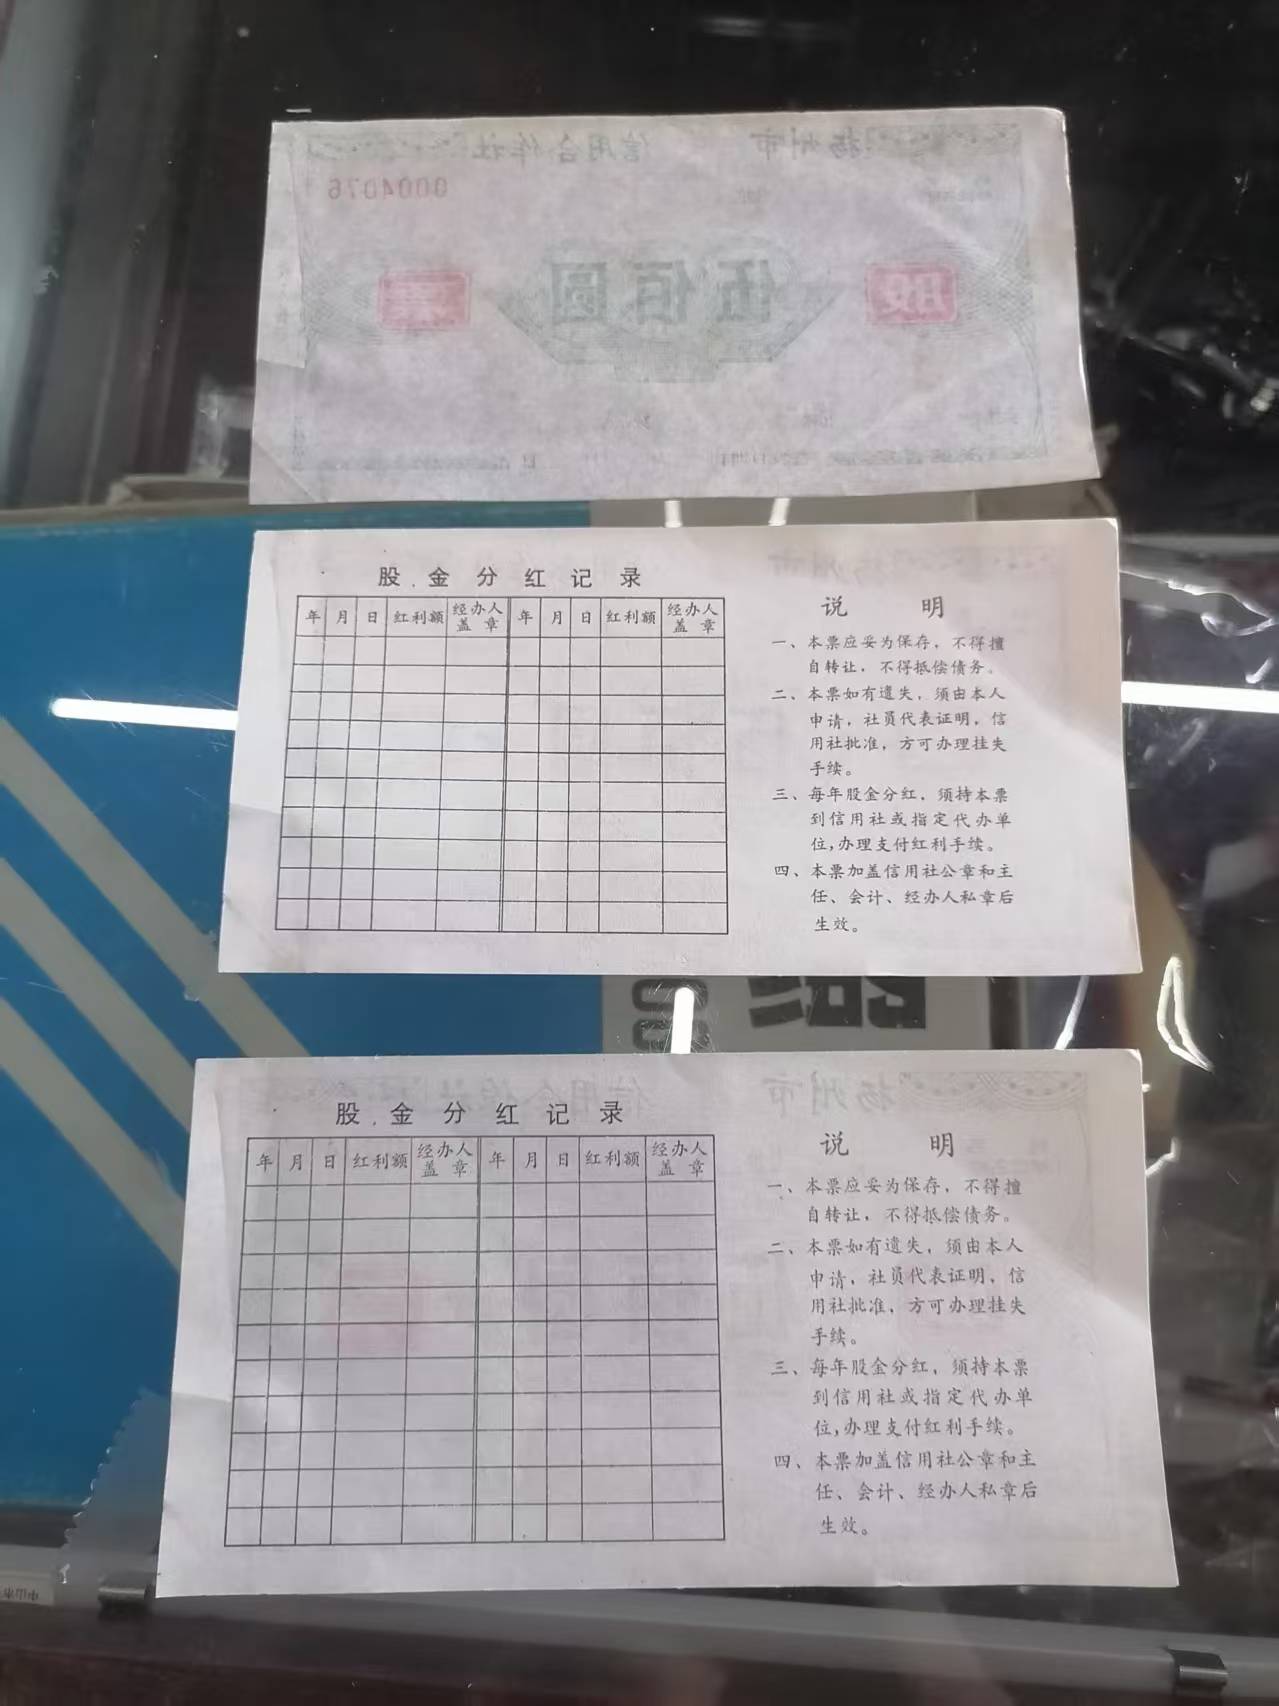 扬州市 信用合作社
0004076
股 伍佰圆 票
股金分红记录
年 月 日 红利额 经办人盖章 年 月 日 红利额 经办人盖章
说 明
一、本票应妥为保存，不得擅
自转让，不得抵偿债务。
二、本票如有遗失，须由本人
申请，社员代表证明，信
用社批准，方可办理挂失
手续。
三、每年股金分红，须持本票
到信用社或指定代办单
位，办理支付红利手续。
四、本票加盖信用社公章和主
任、会计、经办人私章后
生效。
扬州市 信用合作社
股金分红记录
年 月 日 红利额 经办人盖章 年 月 日 红利额 经办人盖章
说 明
一、本票应妥为保存，不得擅
自转让，不得抵偿债务。
二、本票如有遗失，须由本人
申请，社员代表证明，信
用社批准，方可办理挂失
手续。
三、每年股金分红，须持本票
到信用社或指定代办单
位，办理支付红利手续。
四、本票加盖信用社公章和主
任、会计、经办人私章后
生效。